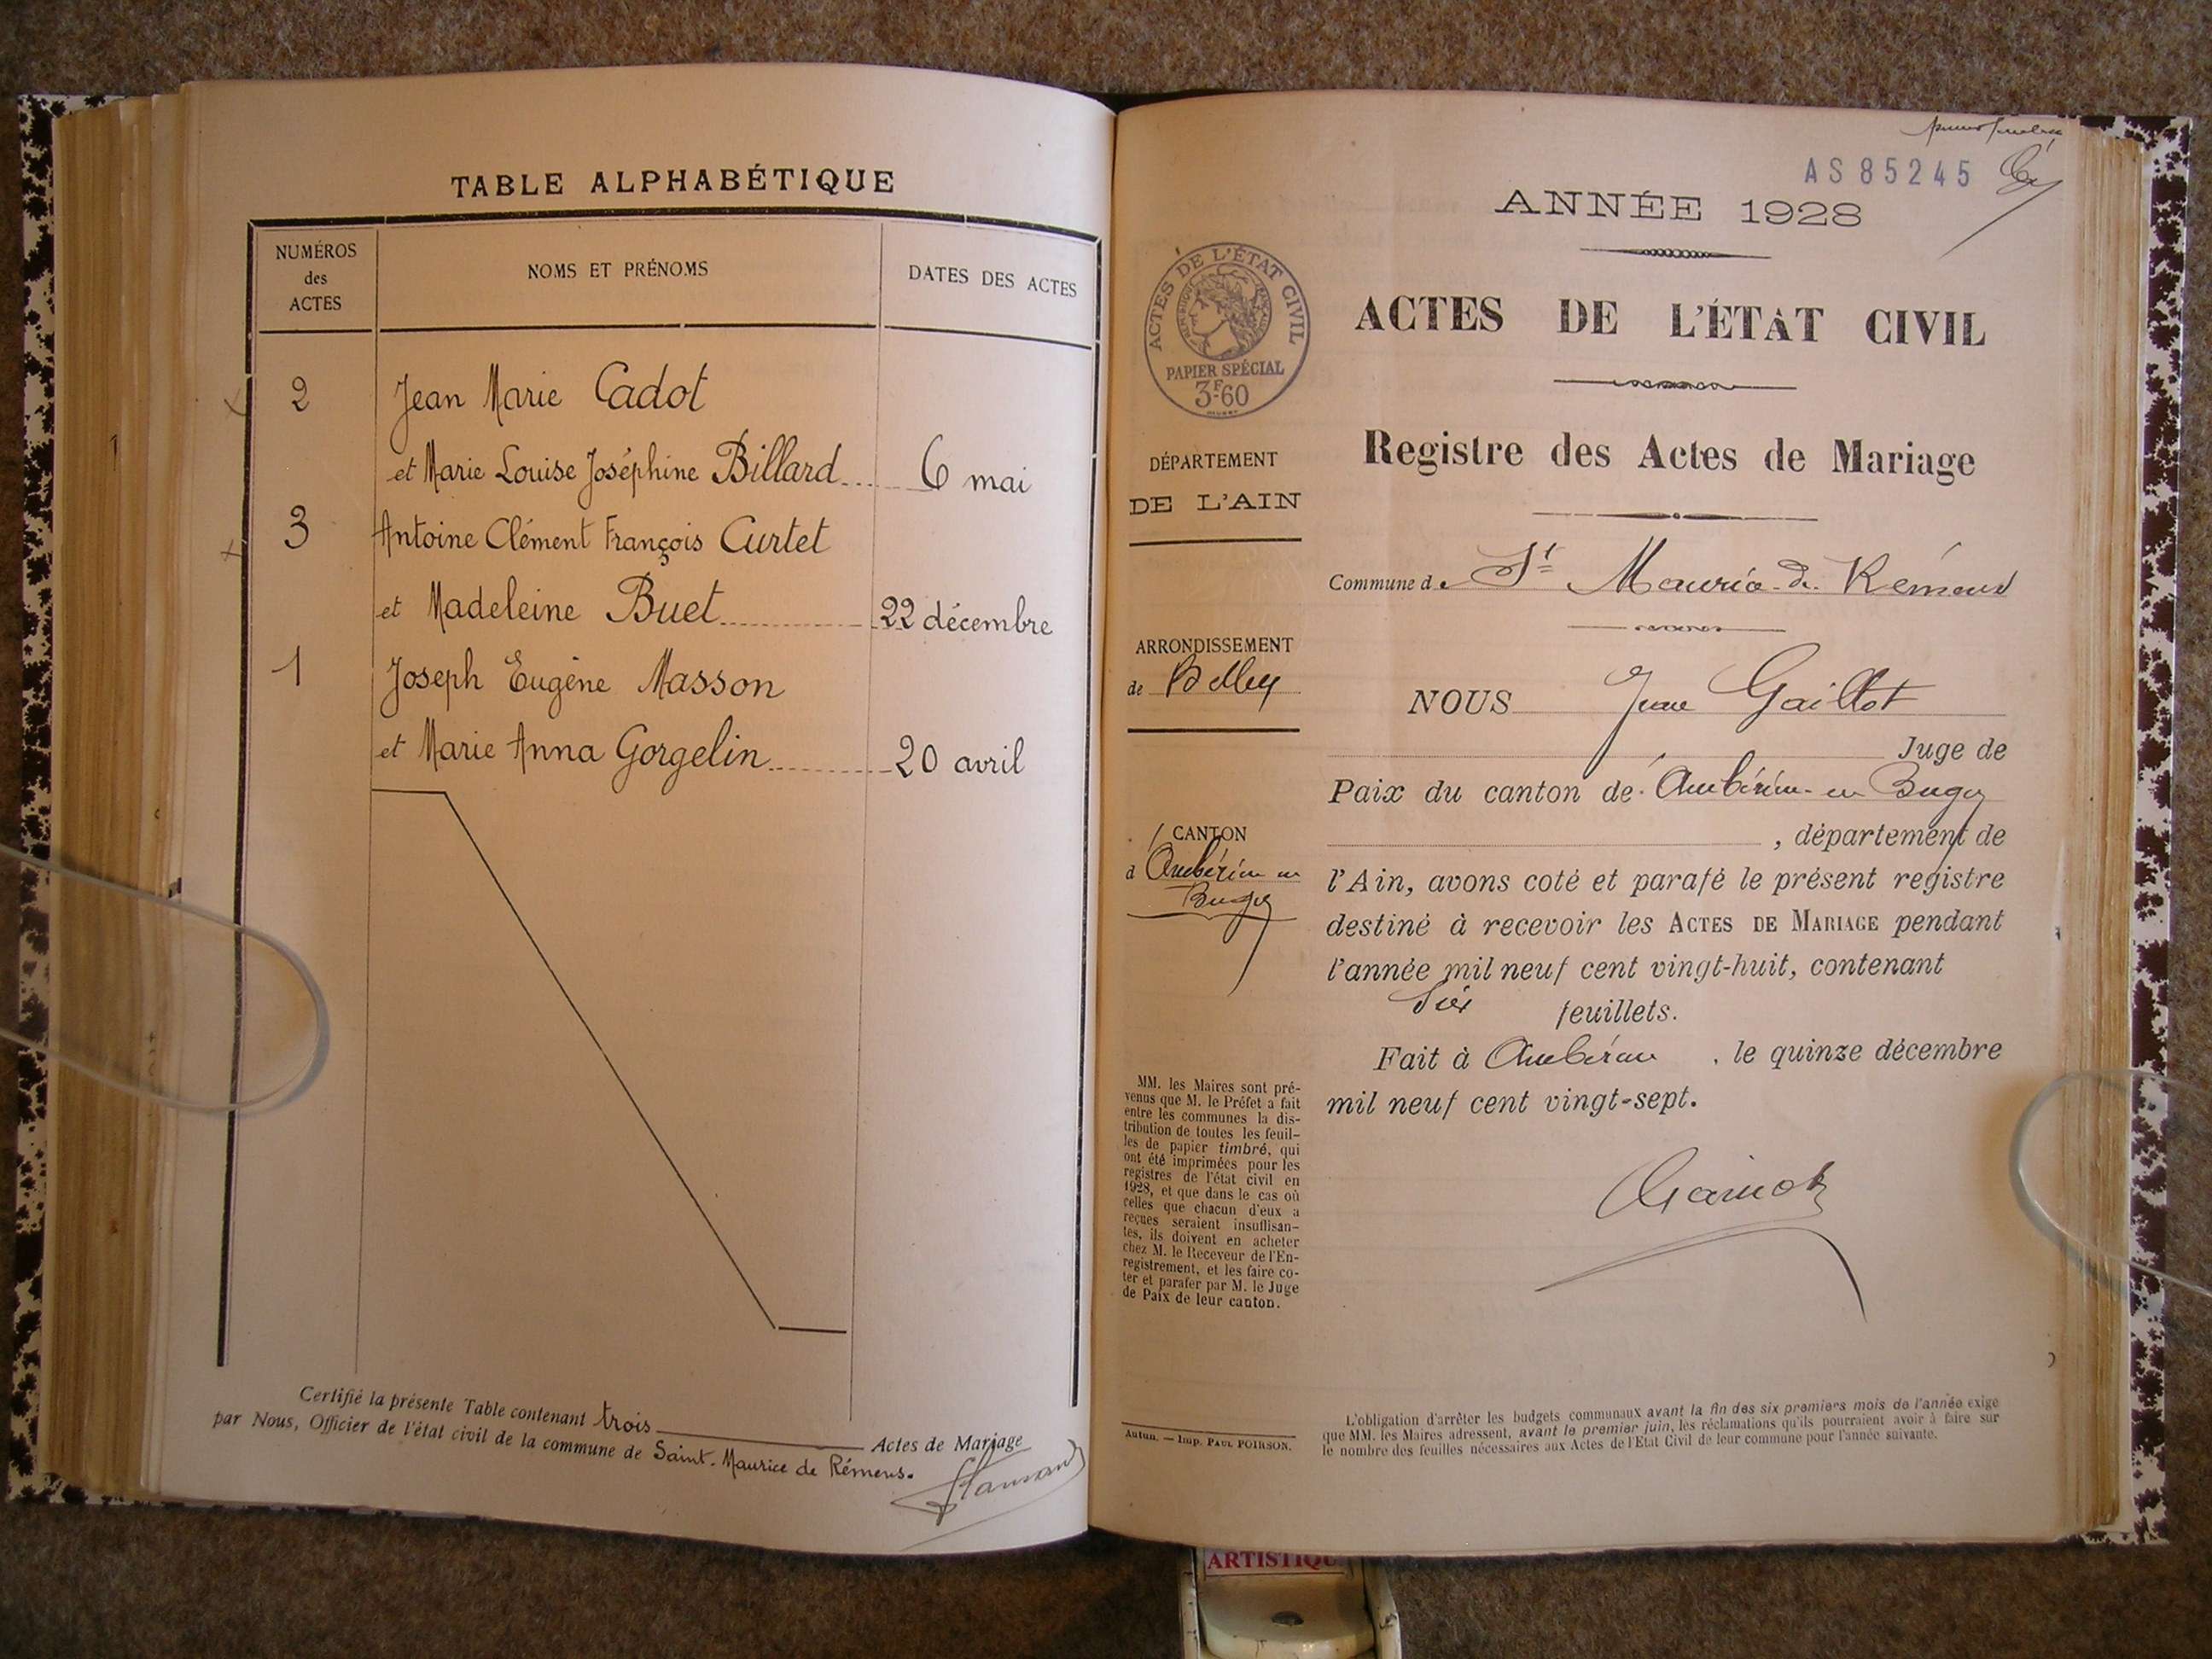 TABLE ALPHABÉTIQUE
NUMÉROS
des
ACTES
NOMS ET PRÉNOMS
DATES DES ACTES
2 Jean Marie Cadot
et Marie Louise Joséphine Billard 6 mai
3 Antoine Clément François Curtet
et Madeleine Buet 22 décembre
1 Joseph Eugène Masson
et Marie Anna Gorgelin 20 avril
Certifié la présente Table contenant trois Actes de Mariage
par Nous, Officier de l'état civil de la commune de Saint-Maurice de Rémens.
AS 85245
ANNÉE 1928
ACTES DE L'ÉTAT CIVIL
RÉPUBLIQUE FRANÇAISE
PAPIER SPÉCIAL
3F60
ACTES DE L'ÉTAT CIVIL
Registre des Actes de Mariage
DÉPARTEMENT
DE L'AIN
Commune de St Maurice-de-Rémens
ARRONDISSEMENT
de Belley
NOUS Gaillot
Juge de
Paix du canton de Ambérieu-en Bugey
CANTON
d'Ambérieu en
Bugey
, département de
l'Ain, avons coté et parafé le présent registre
destiné à recevoir les ACTES DE MARIAGE pendant
l'année mil neuf cent vingt-huit, contenant
six feuillets.
Fait à Ambérieu, le quinze décembre
mil neuf cent vingt-sept.
MM. les Maires sont pré-
venus que M. le Préfet a fait
entre les communes la dis-
tribution de toutes les feuil-
les de papier timbré, qui
ont été imprimées pour les
registres de l'état civil en
1928, et que dans le cas où
celles que chacun d'eux a
reçues seraient insuffisan-
tes, ils doivent en acheter
chez M. le Receveur de l'En-
registrement, et les faire co-
ter et parafer par M. le Juge
de Paix de leur canton.
Autun. — Imp. PAUL POIRSON.
L'obligation d'arrêter les budgets communaux avant la fin des six premiers mois de l'année exige
que MM. les Maires adressent, avant le premier juin, les réclamations qu'ils pourraient avoir à faire sur
le nombre des feuilles nécessaires aux Actes de l'Etat Civil de leur commune pour l'année suivante.